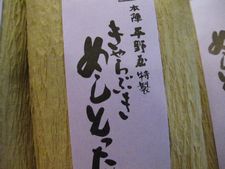 本陣 平野屋 特製
きゃらぶき
めしとった